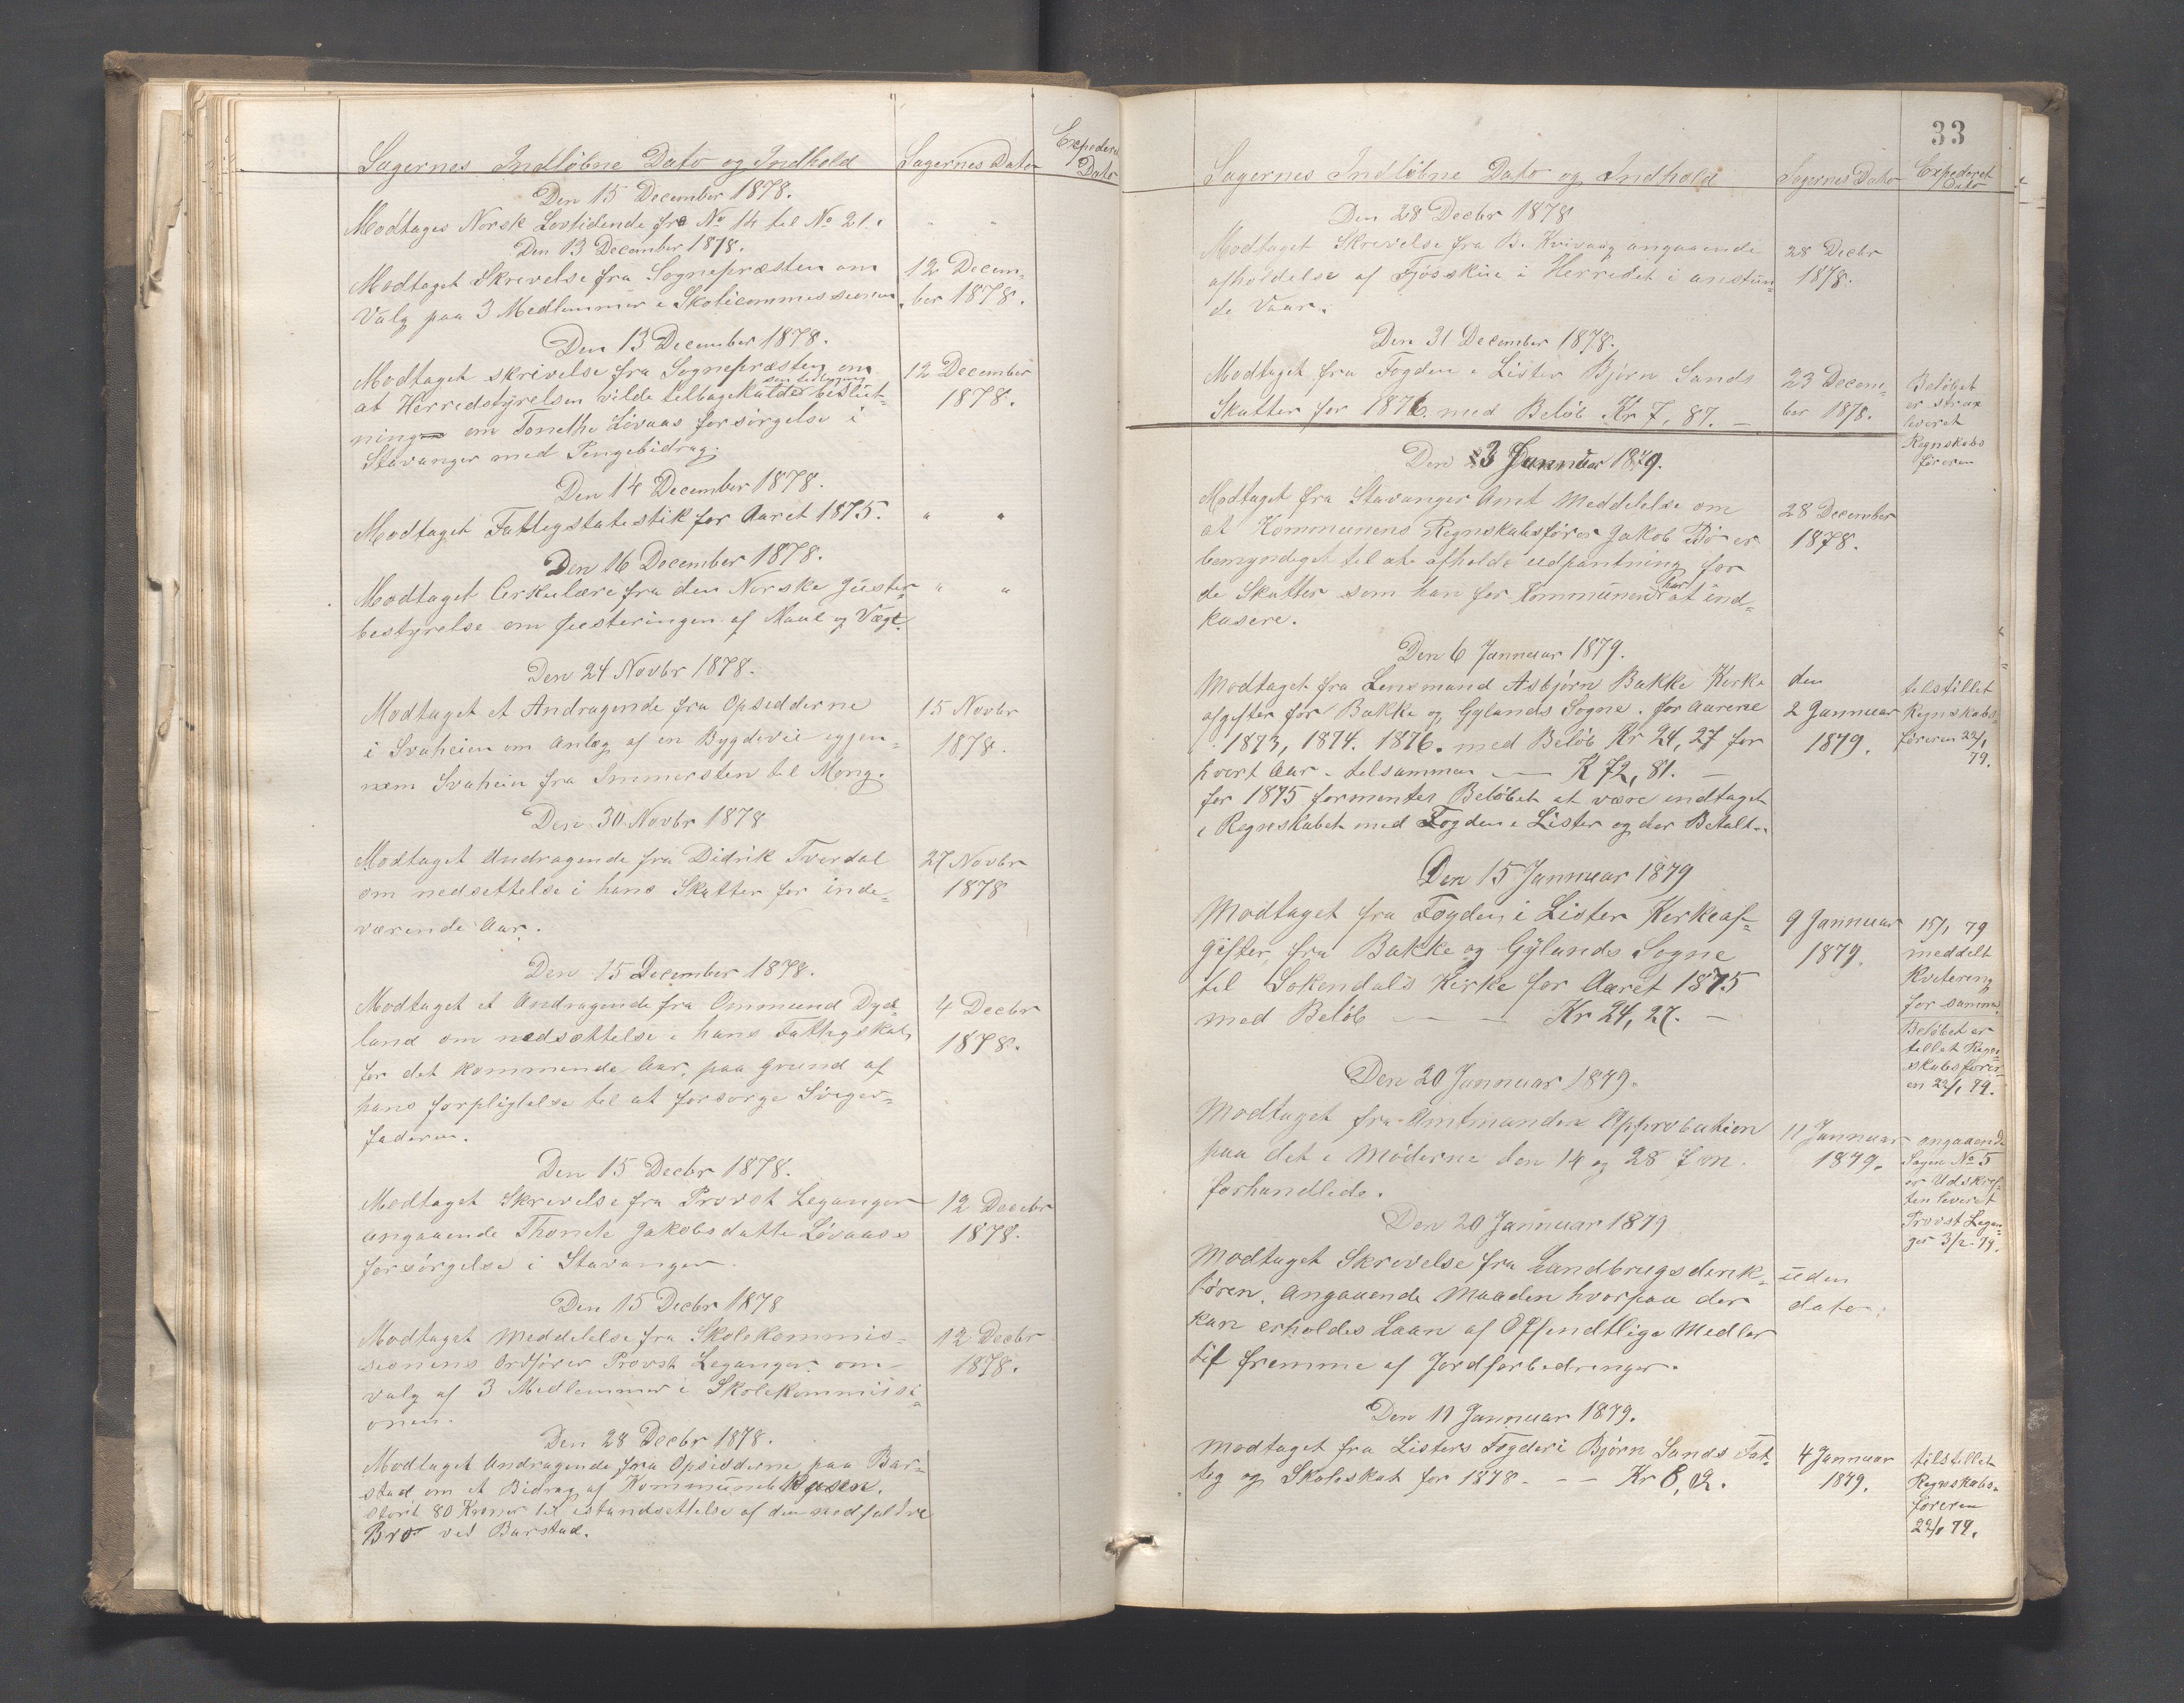 Sagernes Indløbne Dato og Indhold Sagernes Dato Expederet Dato
Den 15 December 1878.
Modtages Norsk Lovtidende fra No 14 til No 21. " "
Den 13 December 1878.
Modtaget Skrivelse fra Sognepræsten om 12 Decem-
Valg paa 3 Medlemmer i Skolicommissionen. ber 1878.
Den 13 December 1878.
Modtaget skrivelse fra Sognepræsten om 12 December
at Herredstyrelsen vilde tilbagekalde beslut- 1878.
ning om Tonethe Løvaas forsørgelse i
Stavanger med Pengebidrag.
Den 14 December 1878.
Modtaget Fattigstatestik for Aaret 1875. " "
Den 16 December 1878.
Modtaget Cirkulære fra den Norske Juster- " "
bestyrelse om justeringen af Maal og Vægt.
Den 24 Novbr 1878.
Modtaget et Andragende fra Opsidderne 15 Novbr
i Svaheien om Anlæg af en Bygdevei igjen- 1878.
nem Svaheien fra Immersten til Mong.
Den 30 Novbr 1878
Modtaget Andragende fra Didrik Tverdal 27 Novbr
om nedsettelse i hans Skatter for inde- 1878
værende Aar.
Den 15 December 1878.
Modtaget et Andragende fra Ommund Dyd- 4 Decbr
land om nedsættelse i hans Fattigskat 1878.
for det kommende Aar, paa grund af
hans forpligtelse til at forsørge Sviger-
faderen.
Den 15 Decbr 1878.
Modtaget Skrivelse fra Provst Leganger 12 Decebr
angaaende Thonete Jakobsdatte Løvaas's 1878.
forsørgelse i Stavanger.
Den 15 Decbr 1878
Modtaget Meddelelse fra Skolekommis- 12 Decbr
sionens Ordfører Provst Leganger om 1878.
valg af 3 Medlemmer i Skolekommissi-
onen.
Den 28 Decbr 1878.
Modtaget Andragende fra Opsidderne paa Bar-
stad om et Bidrag af Kommünekassen.
stort 80 Kroner til istandsettelse af den nedfaldne
Bro ved Barstad.
33
Sagernes Indløbne Dato og Indhold Sagernes Dato Expederet Dato
Den 28 Decbr 1878
Modtaget Skrivelse fra B. Kvivaag angaaende 28 Decbr
afholdelse af Fjøsskue i Herredet i anstun- 1878.
de Vaar.
Den 31 December 1878.
Modtaget fra Fogden i Lister Bjørn Sands 23 Decem- Beløbet
Skatter for 1876. med Beløb Kr 7,87. ber 1878. er strax
leveret
Regnskabs
føreren
Den 3 Januar 1879.
Modtaget fra Stavanger Amt Meddelelse om 28 December
at Kommunens Regnskabsfører Jakob Bø er 1878.
bemyndiget til at afholde udpantning for
de Skatter som han for Kommunen har at ind-
kasere.
Den 6 Januar 1879.
Modtaget fra Lensmand Asbjørn Bakke Kirke den tilstillet
afgifter for Bakke og Gylands Sogne. for Aarene 2 Januar Regnskabs
1873, 1874. 1876. med Beløb Kr 24,27 for 1879. føreren 22/1
hvert Aar - tilsammen — K 72,81. 79.
for 1875 formentes Beløbet at være indtaget
i Regnskabet med Fogden i Lister og der Betalt.
Den 15 Januar 1879
Modtaget fra Fogden i Lister Kirkeaf- 9 Januar 15/1 79
gifter, fra Bakke og Gylands Sogne 1879. meddelt
til Sokendals Kirke for Aaret 1875 Kvitering
med Beløb — — Kr 24,27. — for samme
Beløbet er
tillet Regn-
skabsfører-
en 22/1 79.
Den 20 Januar 1879.
Modtaget fra Amtmanden Approbation 11 Januar angaaende
paa det i Møderne den 14 og 28 f. m. 1879. Sagen No 5
forhandlede. er Udskrif-
ten leveret
Provst Legan-
ger 3/2 79.
Den 20 Januar 1879
Modtaget Skrivelse fra Landbrugsdirek- uden
tøren. Angaaende Maaden hvorpaa der dato.
kan erholdes Laan af Offendtlige Medler
til fremme af Jordforbedringer.
Den 11 Januar 1879.
Modtaget fra Listers Fogderi Bjørn Sands Fat- 4 Januar tilstillet
tig og Skoleskat for 1878 - — Kr 8,02. 1879. Regnskabs-
føreren
22/1 79.